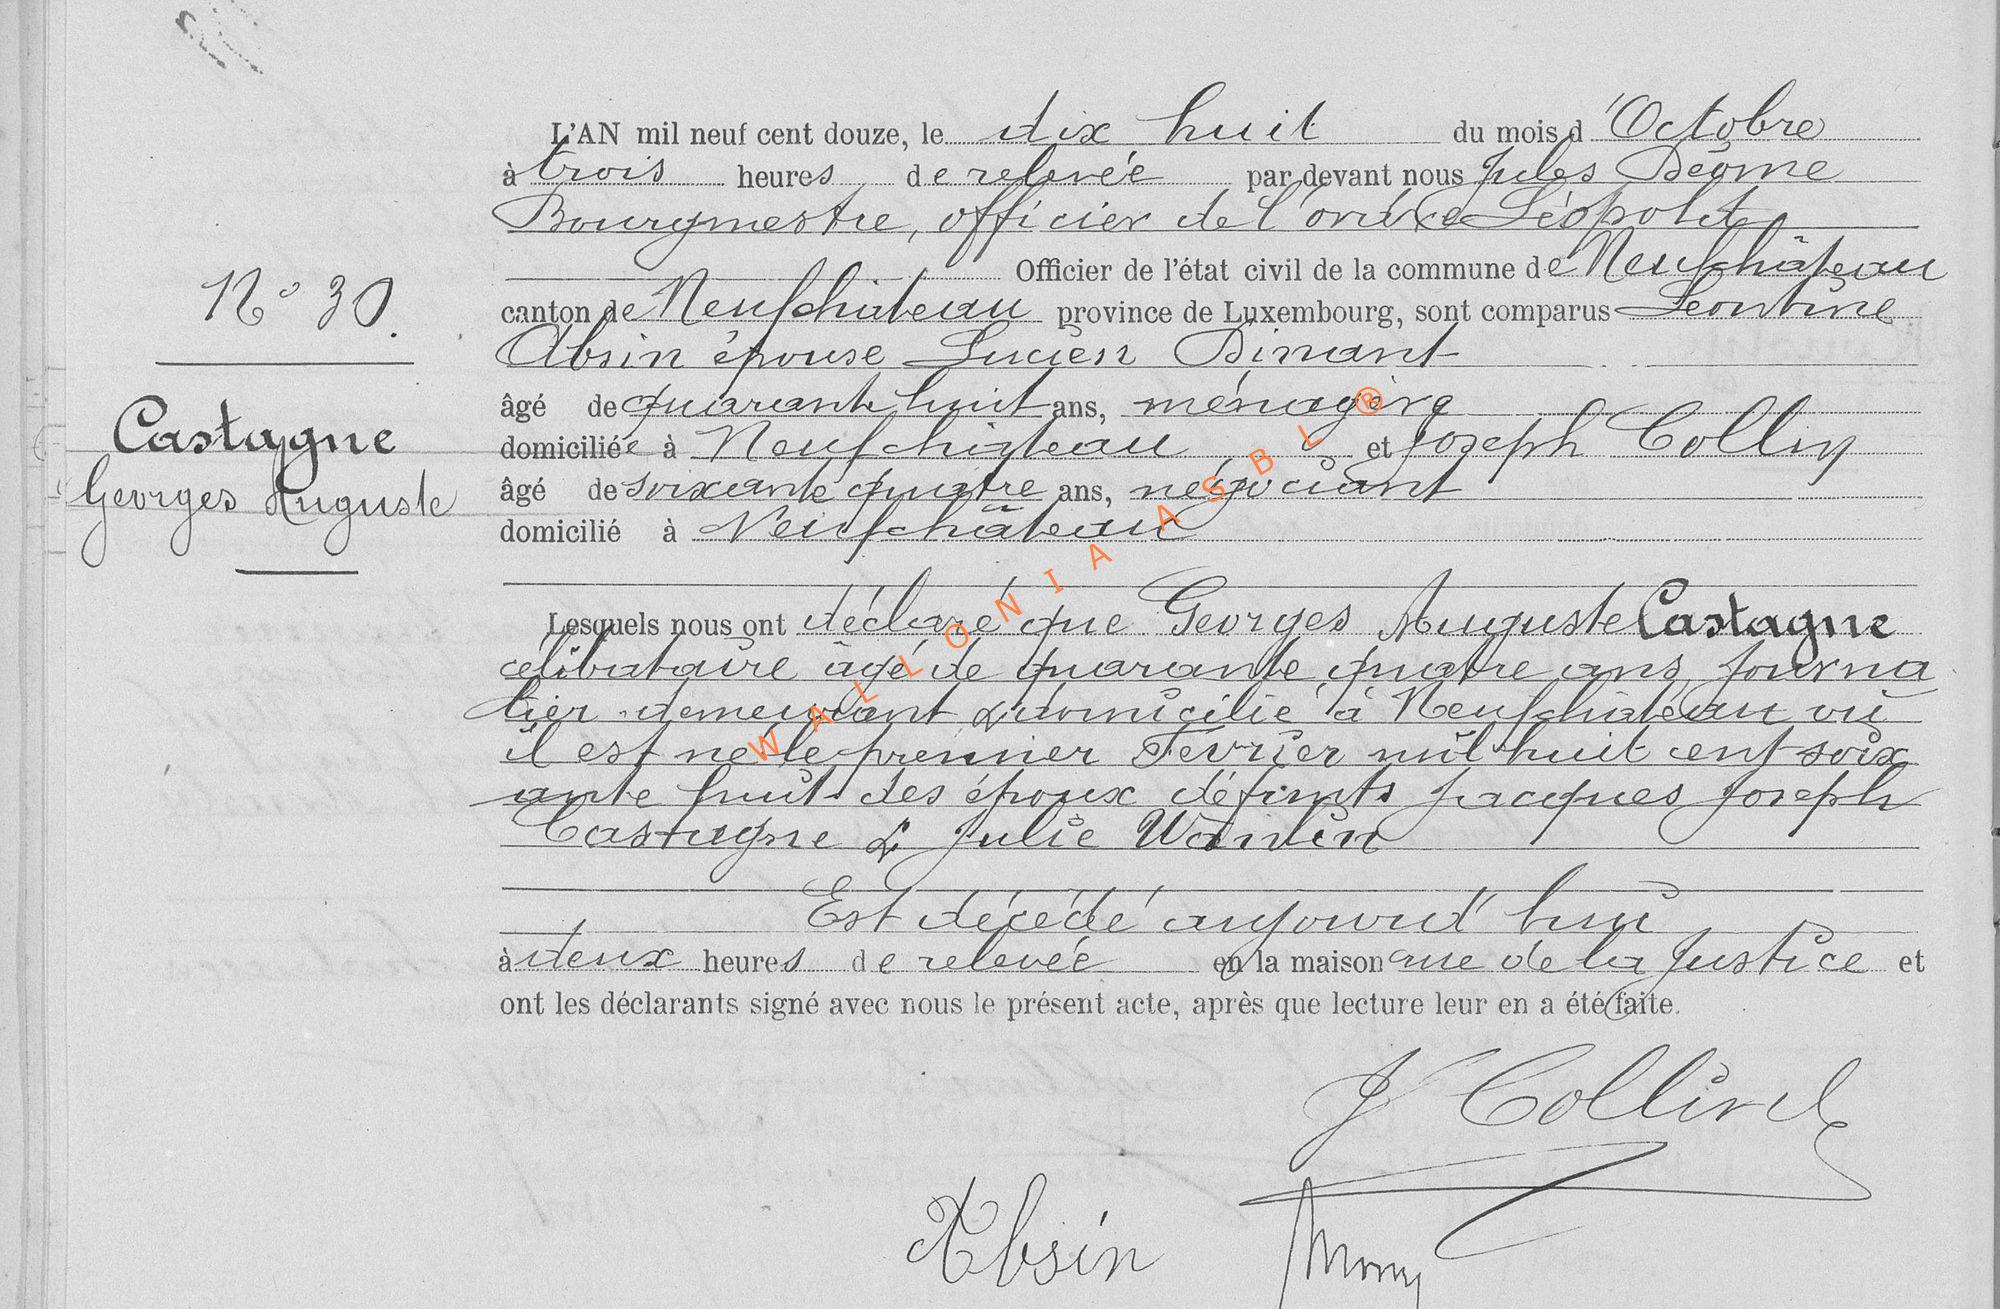 L'AN mil neuf cent douze, le dix huit du mois d'Octobre
à trois heures de relevée par devant nous Jules Déome
Bourgmestre, officier de l'ordre Léopold
Officier de l'état civil de la commune de Neufchâteau
N° 30.
canton de Neufchâteau province de Luxembourg, sont comparus Léontine
Absin épouse Lucien Dinant
âgé de quarante huit ans, ménagère
Castagne
domiciliée à Neufchâteau et Joseph Collin
Georges Auguste
âgé de soixante quatre ans, négociant
domicilié à Neufchâteau
WALLONIA ASBL ®
Lesquels nous ont déclaré que Georges Auguste Castagne
célibataire âgé de quarante quatre ans, journa
lier demeurant & domicilié à Neufchâteau où
il est né le premier Février mil huit cent soix
ante huit des époux défunts Jacques Joseph
Castagne & Julie
Est décédé aujourd'hui
à deux heures de relevée en la maison rue de la Justice et
ont les déclarants signé avec nous le présent acte, après que lecture leur en a été faite.
J Collin
Absin